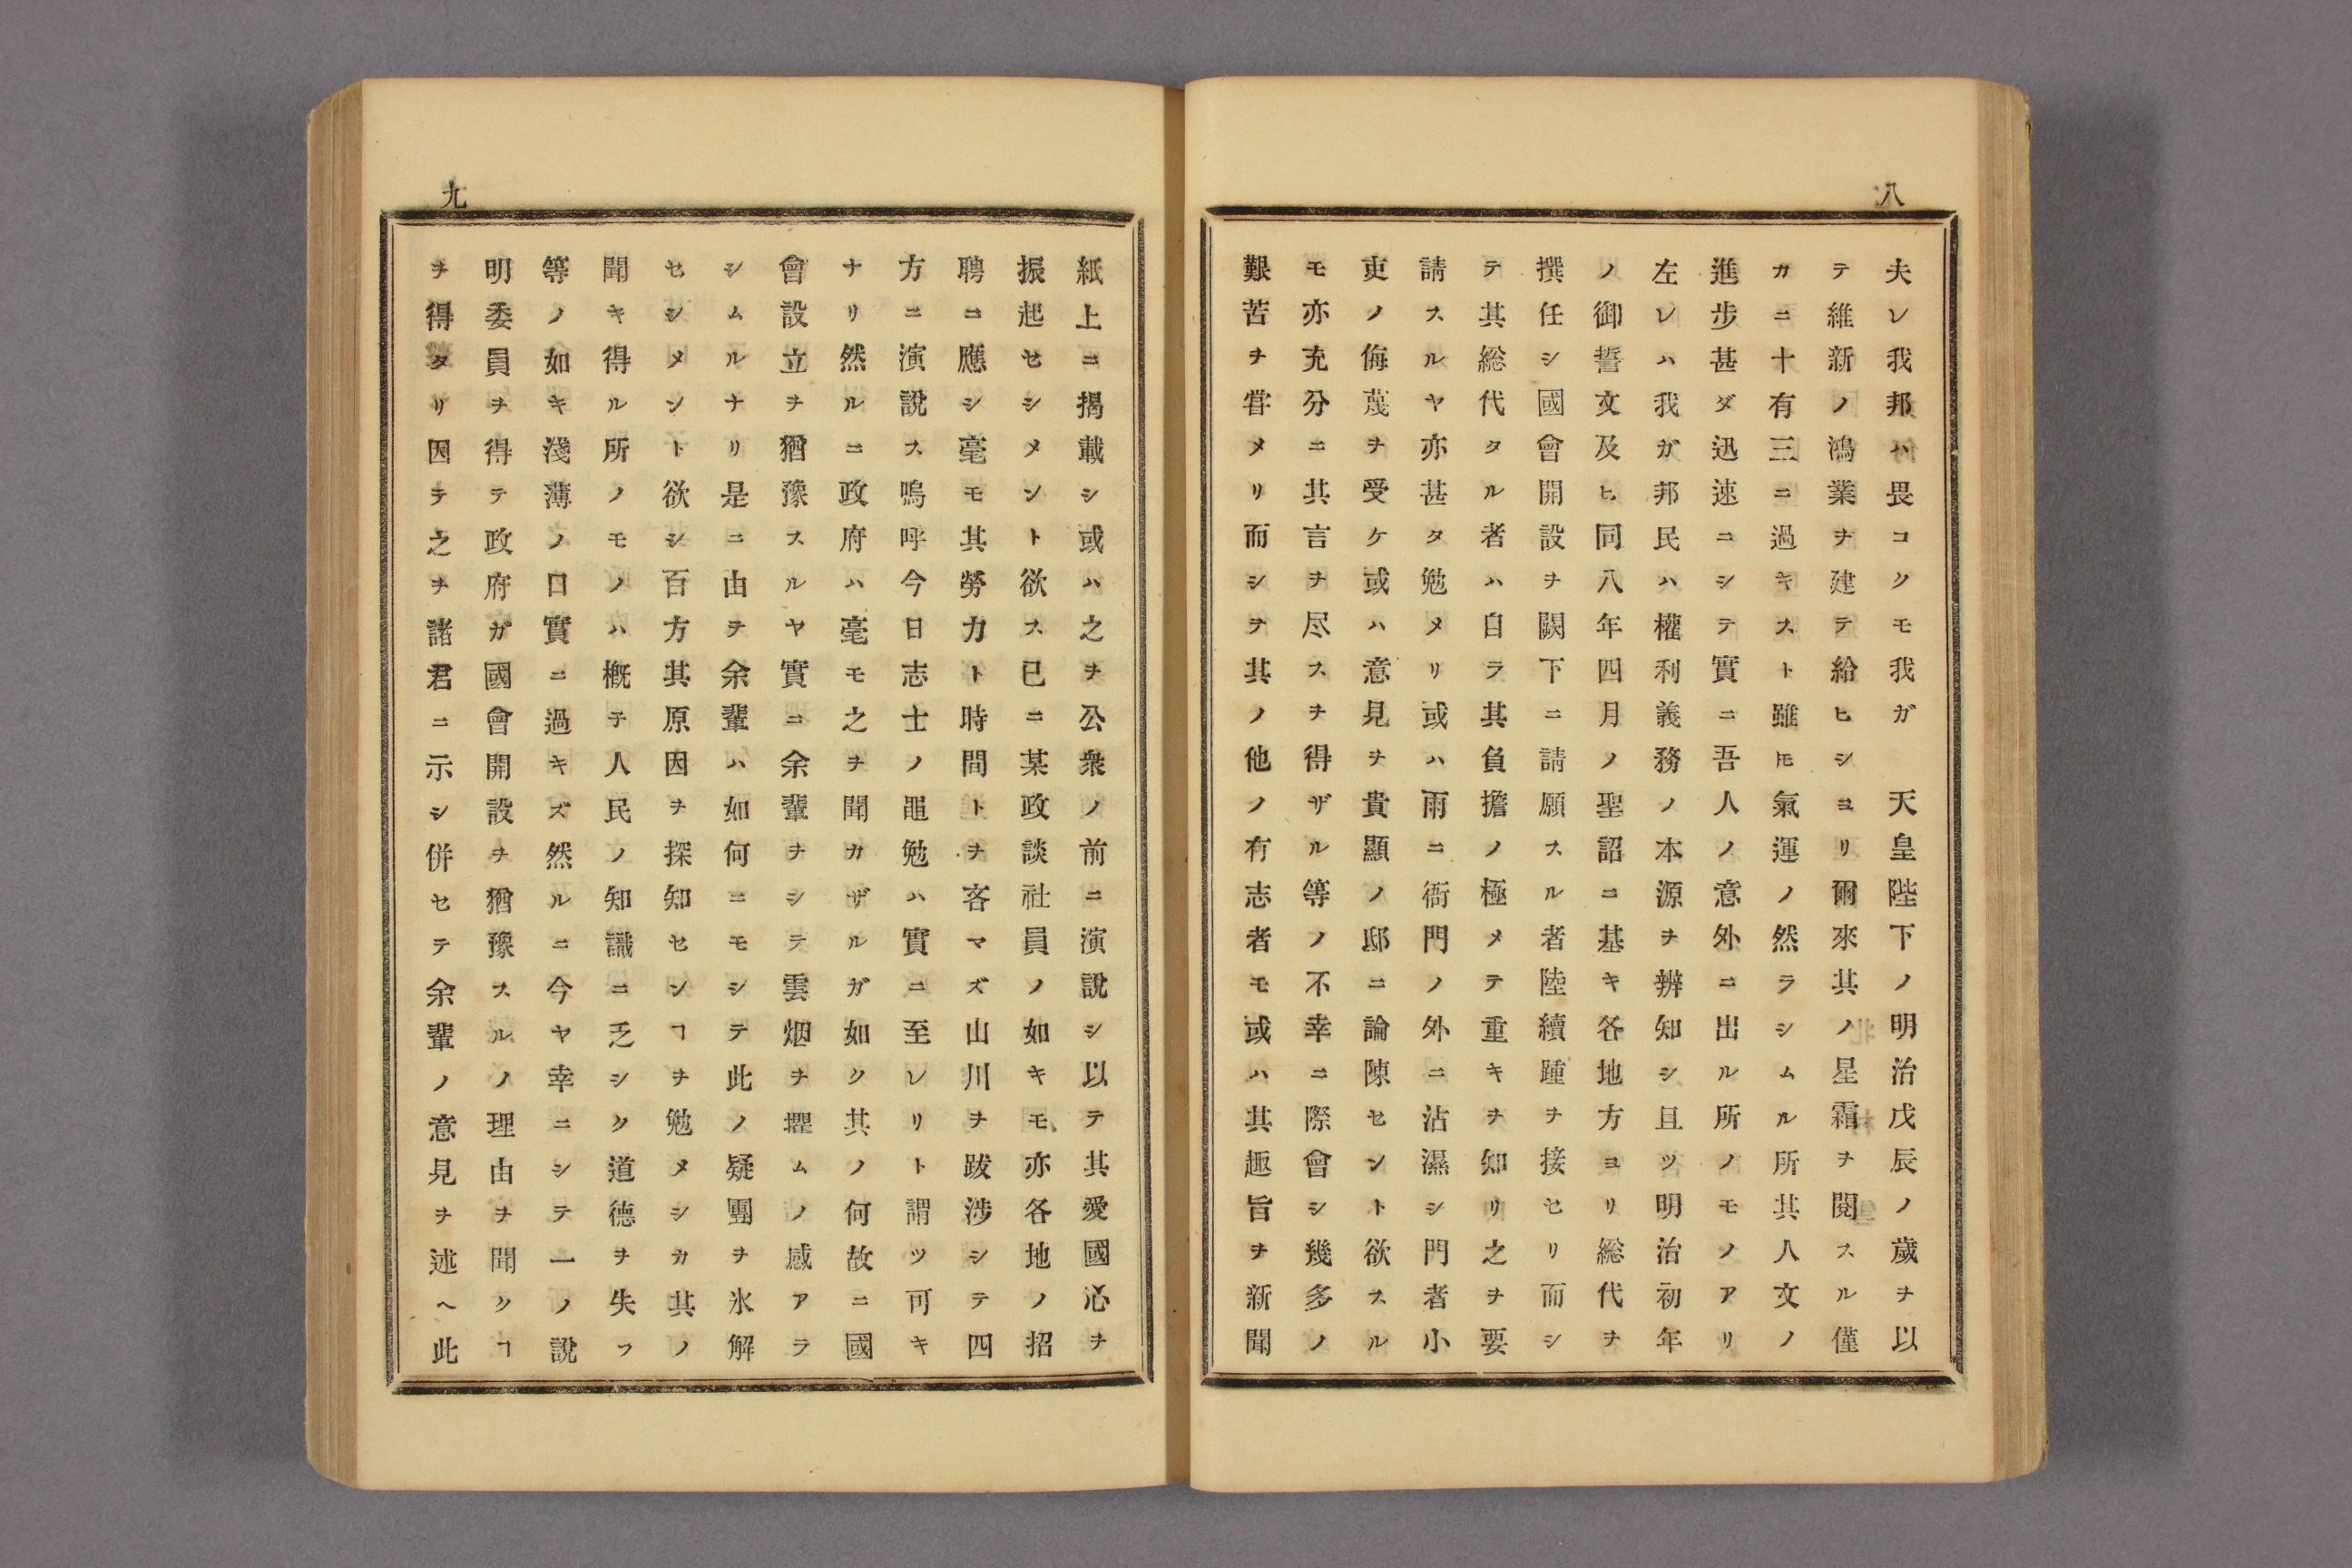 八
夫レ我邦ハ畏コクモ我ガ　天皇陛下ノ明治戊辰ノ歲ヲ以
テ維新ノ鴻業ヲ建テ給ヒシヨリ爾來其ノ星霜ヲ閱スル僅
カニ十有三ニ過キスト雖𪜈氣運ノ然ラシムル所其人文ノ
進步甚ダ迅速ニシテ實ニ吾人ノ意外ニ出ル所ノモノアリ
左レハ我ガ邦民ハ權利義務ノ本源ヲ辨知シ且ツ明治初年
ノ御誓文及ヒ同八年四月ノ聖詔ニ基キ各地方ヨリ総代ヲ
撰任シ國會開設ヲ闕下ニ請願スル者陸續踵ヲ接セリ而シ
テ其総代タル者ハ自ラ其負擔ノ極メテ重キヲ知リ之ヲ要
請スルヤ亦甚タ勉メリ或ハ雨ニ衙門ノ外ニ沾濕シ門者小
吏ノ侮蔑ヲ受ケ或ハ意見ヲ貴顯ノ邸ニ論陳セント欲スル
モ亦充分ニ其言ヲ尽スヲ得ザル等ノ不幸ニ際會シ幾多ノ
艱苦ヲ甞メリ而シヲ其ノ他ノ有志者モ或ハ其趣旨ヲ新聞
九
紙上ニ揭載シ或ハ之ヲ公衆ノ前ニ演說シ以テ其愛國心ヲ
振起セシメント欲ス已ニ某政談社員ノ如キモ亦各地ノ招
聘ニ應シ毫モ其勞力ト時間トヲ吝マズ山川ヲ跋涉シテ四
方ニ演說ス嗚呼今日志士ノ黽勉ハ實ニ至レリト謂ツ可キ
ナリ然ルニ政府ハ毫モ之ヲ聞カザルガ如ク其ノ何故ニ國
會設立ヲ猶豫スルヤ實ニ余輩ヲシテ雲烟ヲ攫ムノ感アラ
シムルナリ是ニ由テ余輩ハ如何ニモシテ此ノ疑團ヲ氷解
セシメント欲シ百方其原因ヲ探知センヿヲ勉メシカ其ノ
聞キ得ル所ノモノハ概テ人民ノ知識ニ乏シク道德ヲ失フ
等ノ如キ淺薄ノ口實ニ過キズ然ルニ今ヤ幸ニシテ一ノ說
明委員ヲ得テ政府ガ國會開設ヲ猶豫スルノ理由ヲ聞クヿ
ヲ得タリ因テ之ヲ諸君ニ示シ併セテ余輩ノ意見ヲ述ヘ此